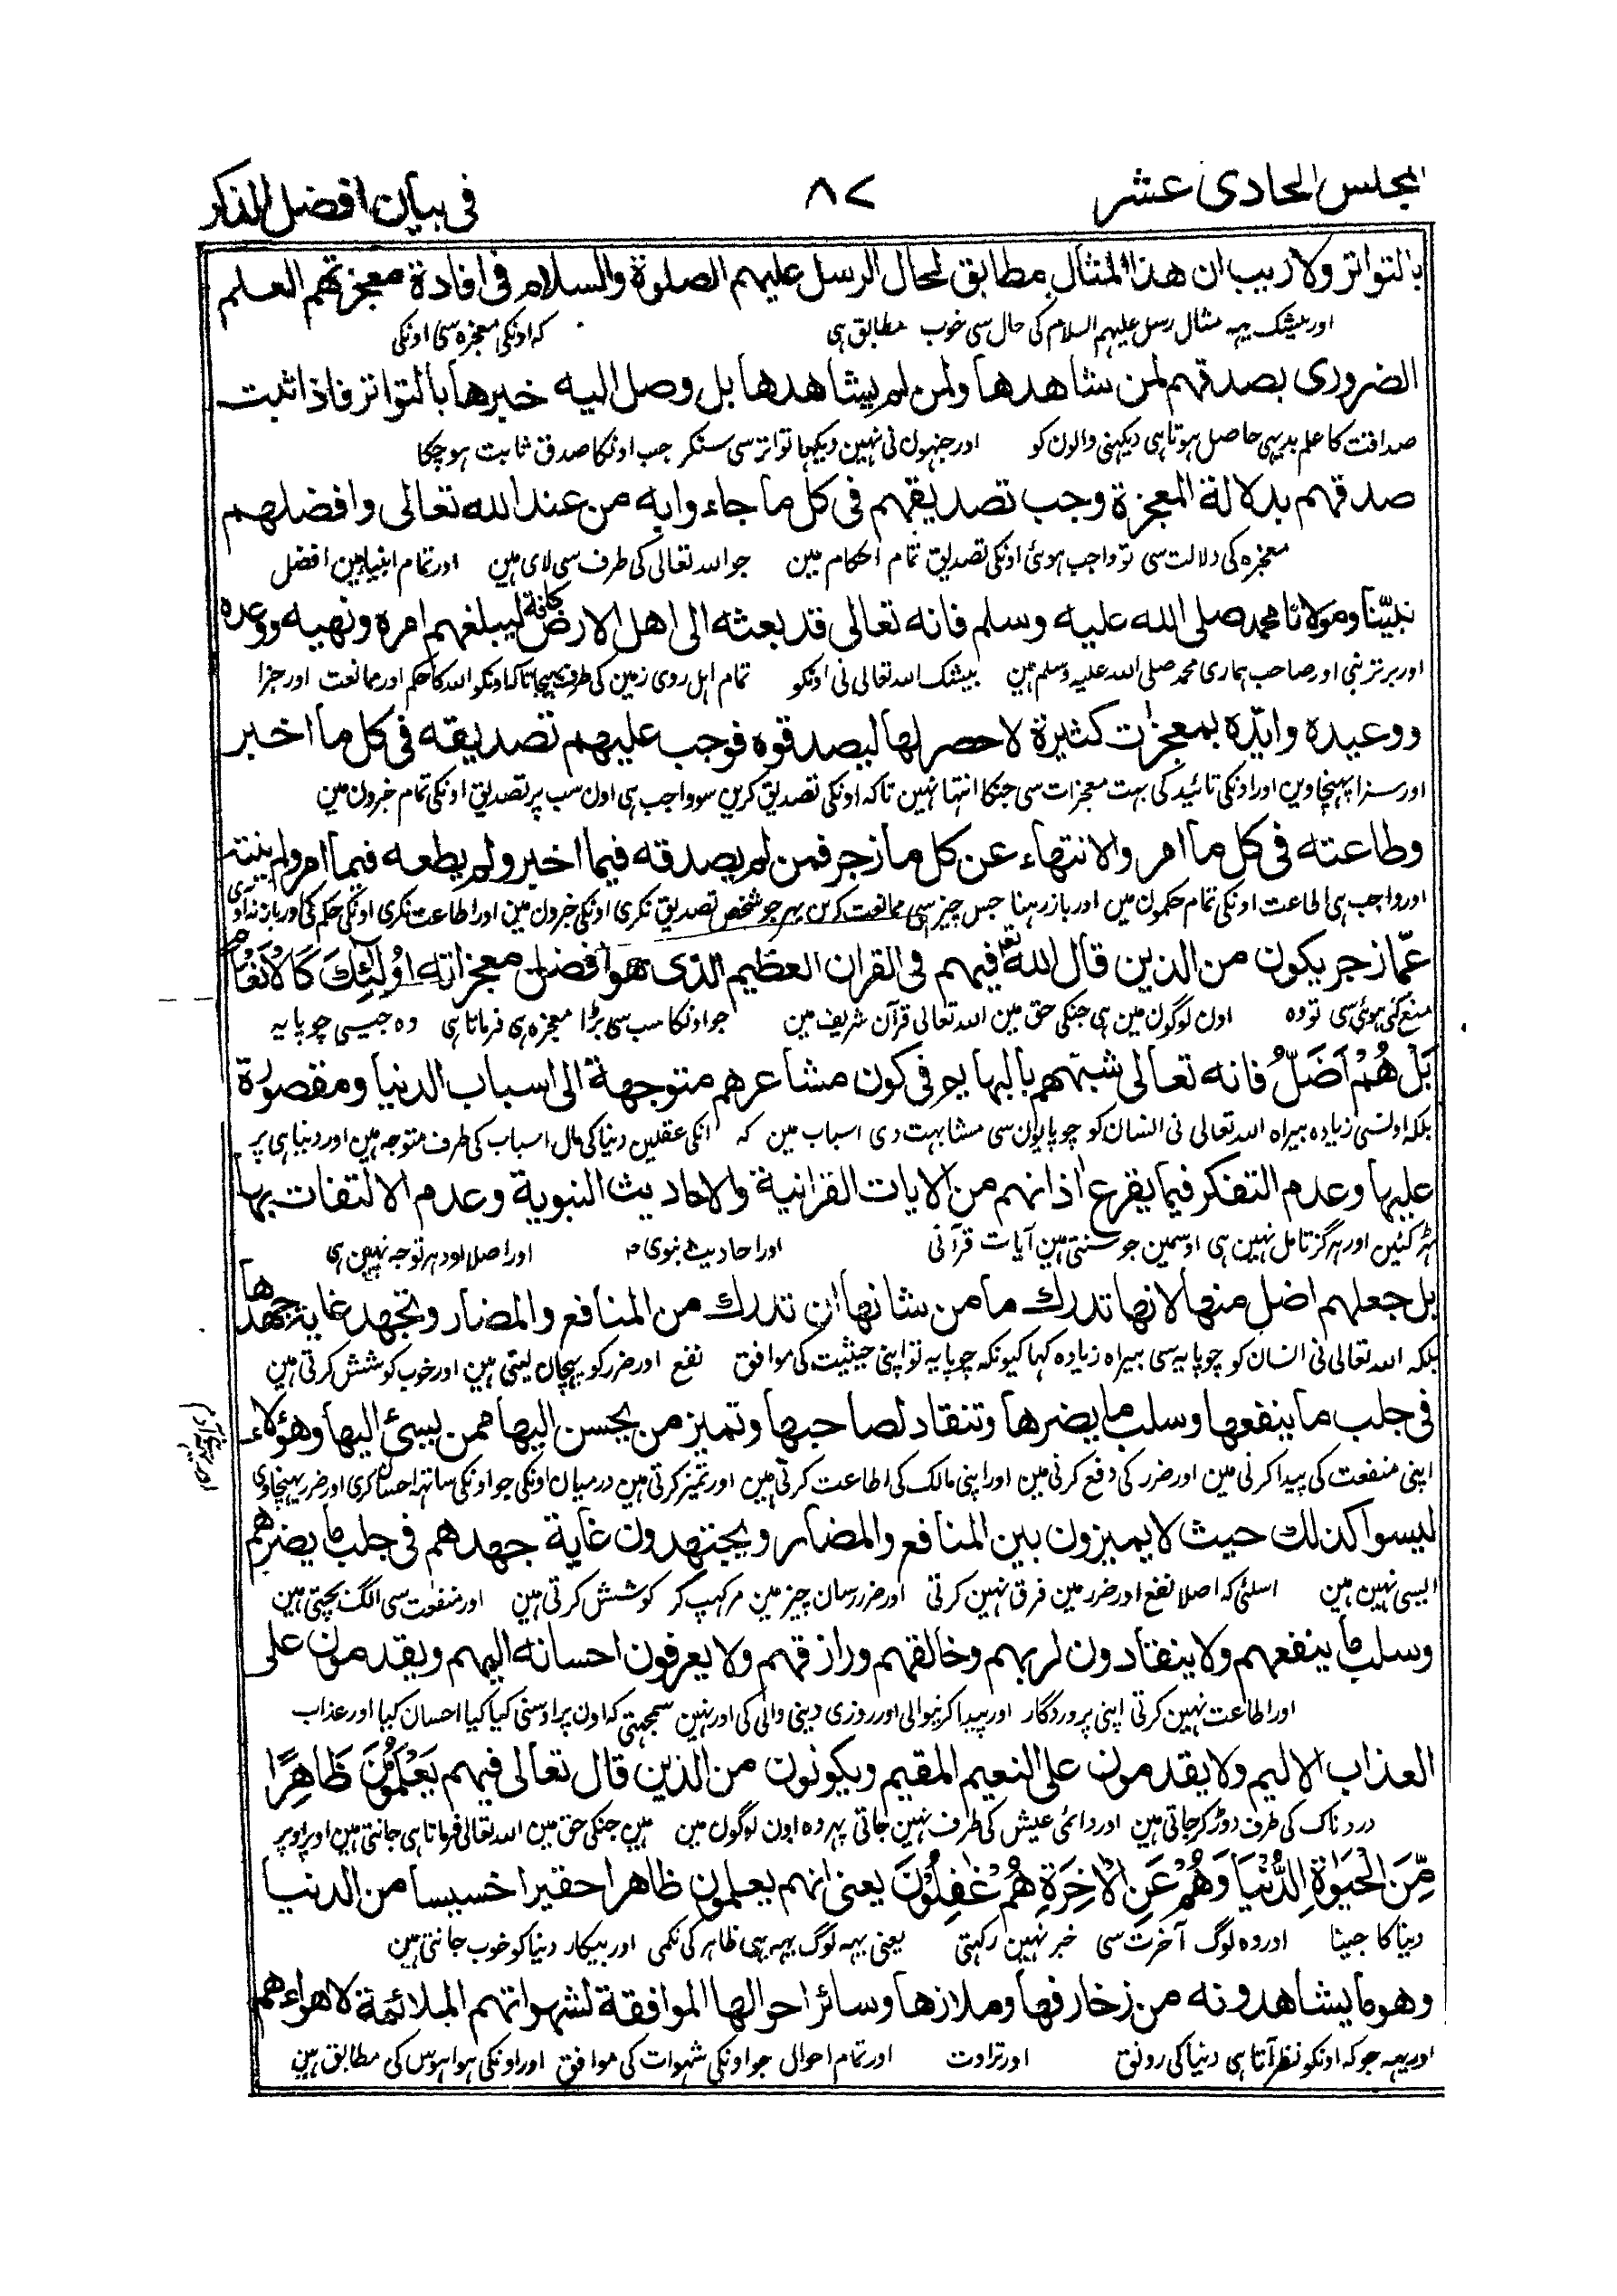 المجلس الحادى عشر
٨٧
فى بيان افضل الذكر
بالتواتر ولا ريب ان هذا المثال مطابق لحال الرسل عليهم الصلوة والسلام فى افادة معجزتهم العلم
اور بیشک یہہ مثال رسل علیہم السلام کی حال سی خوب مطابق ہی کہ اونکی معجزہ سی اونکی
الضرورى بصدقهم لمن شاهدها ولمن لم يشاهدها بل وصل اليه خبرها بالتواتر فاذا ثبت
صداقت کا علم بدیہی حاصل ہوتا ہی دیکہنی والون کو اور جنہون نی نہین دیکہا تواتر سی سنکر جب اونکا صدق ثابت ہوچکا
صدقهم بدلالة المعجزة وجب تصديقهم فى كل ما جاءوا به من عند الله تعالى وافضلهم
معجزہ کی دلالت سی تو واجب ہوئی اونکی تصدیق تمام احکام مین جو الله تعالی کی طرف سی لای ہین اور تمام انبیا مین افضل
نبيّنا ومولانا محمد صلى الله عليه وسلم فانه تعالى قد بعثه الى اهل الارض كافة ليبلغهم امره ونهيه ووعده
اور برتر نبی اور صاحب ہماری محمد صلی الله علیہ وسلم ہین بیشک الله تعالی نی اونکو تمام اہل روی زمین کی طرف بہیجا تاکہ اونکو الله کا حکم اور ممانعت اور جزا
ووعيده وايّده بمعجزات كثيرة لا حصر لها ليصدقوه فوجب عليهم تصديقه فى كل ما اخبر
اور سزا پہنچاوین اور اونکی تائید کی بہت معجزات سی جنکا انتہا نہین تاکہ اونکی تصدیق کرین سو واجب ہی اون سب پر تصدیق اونکی تمام خبرون مین
وطاعته فى كل ما امر والانتهاء عن كل ما زجر فمن لم يصدقه فيما اخبر ولم يطعه فيما امر ولم ينته
اور واجب ہی اطاعت اونکی تمام حکمون مین اور باز رہنا جس چیز سی ممانعت کرین پہر جو شخص تصدیق نکری اونکی خبرون مین اور اطاعت نکری اونکی حکم کی اور باز نہ آوی
عمّا زجر يكون من الذين قال الله تعا فيهم فى القران العظيم الذى هو افضل معجزاته اُولٰٓئِكَ كَالْاَنْعَامِ
منع کئی ہوئی سی تو وہ اون لوگون مین ہی جنکی حق مین الله تعالی قرآن شریف مین جو اونکا سب سی بڑا معجزہ ہی فرماتا ہی وہ جیسی چوپایہ
بَلْ هُمْ اَضَلُّ فانه تعالى شبههم بالبهايم فى كون مشاعرهم متوجهة الى اسباب الدنيا ومقصورة
بلکہ اونسی زیادہ بیراہ الله تعالی نی انسان کو چوپایون سی مشابہت دی اسباب مین کہ انکی عقلین دنیا کی مال اسباب کی طرف متوجہ ہین اور دنیا ہی پر
عليها وعدم التفكر فيما يقرع اذانهم من الايات القرانية والاحاديث النبوية وعدم الالتفات بها
ہڑ گئین اور ہرگز تامل نہین ہی اوسمین جو سنتی ہین آیات قرآنی اور احادیث نبوی م اور اصلا اودہر توجہ نہین ہی
بل جعلهم اضل منها لانها تدرك ما من شانها ان تدرك من المنافع والمضار وتجهد غاية جهدها
بلکہ الله تعالی نی انسان کو چوپایہ سی بیراہ زیادہ کہا کیونکہ چوپایہ تو اپنی حیثیت کی موافق نفع اور ضرر کو پہچان لیتی ہین اور خوب کوشش کرتی ہین
فى جلب ما ينفعها وسلب ما يضرها وتنقاد لصاحبها وتميز من يحسن اليها ممن يسئ اليها وهؤلاء
اپنی منفعت کی پیدا کرنی مین اور ضرر کی دفع کرنی مین اور اپنی مالک کی اطاعت کرتی ہین اور تمیز کرتی ہین درمیان اونکی جو اونکی ساتہہ احسان کری اور ضرر پہنچاوی
ليسوا كذلك حيث لا يميزون بين المنافع والمضار ويجتهدون غاية جهدهم فى جلب ما يضرهم
ایسی نہین ہین اسلئی کہ اصلا نفع اور ضرر مین فرق نہین کرتی اور ضرر رسان چیز مین مر کہپ کر کوشش کرتی ہین اور منفعت سی الگ بچتی ہین
وسلب ما ينفعهم ولا ينقادون لربهم وخالقهم ورازقهم ولا يعرفون احسانه اليهم ويقدمون على
اور اطاعت نہین کرتی اپنی پروردگار اور پیدا کرنیوالی اور روزی دینی والی کی اور نہین سمجہتی کہ اون پر اوسنی کیا کیا احسان کیا اور عذاب
العذاب الاليم ولا يقدمون على النعيم المقيم ويكونون من الذين قال تعالى فيهم يَعْلَمُوْنَ ظَاهِرًا
دردناک کی طرف دوڑکر جاتی ہین اور دائمی عیش کی طرف نہین جاتی پہر وہ اون لوگون مین ہین جنکی حق مین الله تعالی فرماتا ہی جانتی ہین اوپر اوپر
مِّنَ الْحَيٰوةِ الدُّنْيَا وَهُمْ عَنِ الْاٰخِرَةِ هُمْ غٰفِلُوْنَ يعنى انهم يعلمون ظاهرا حقيرا خسيسا من الدنيا
دنیا کا جینا اور وہ لوگ آخرت سی خبر نہین رکہتی یعنی یہہ لوگ یہہ ہی ظاہر کی نکمی اور بیکار دنیا کو خوب جانتی ہین
وهو ما يشاهدونه من زخارفها وملاذها وسائر احوالها الموافقة لشهواتهم الملائمة لاهواءهم
اور یہہ جو کہ اونکو نظر آتا ہی دنیا کی رونق اور تراوت اور تمام احوال جو اونکی شہوات کی موافق اور اونکی ہوا ہوس کی مطابق ہین